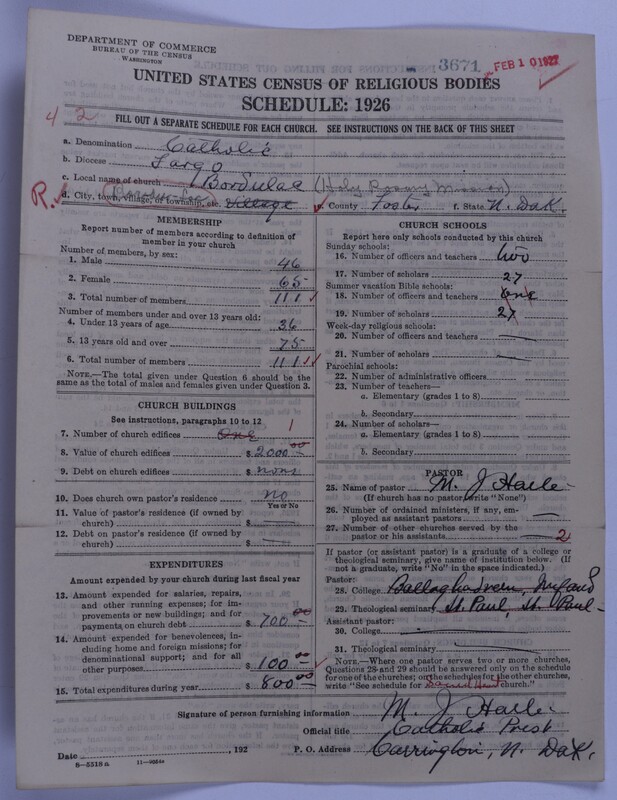 DEPARTMENT OF COMMERCE
BUREAU OF THE CENSUS
WASHINGTON
3671
FEB 10 1927
UNITED STATES CENSUS OF RELIGIOUS BODIES
SCHEDULE: 1926
4 2
FILL OUT A SEPARATE SCHEDULE FOR EACH CHURCH. SEE INSTRUCTIONS ON THE BACK OF THIS SHEET
a. Denomination Catholic
b. Diocese Fargo
c. Local name of church Bordulac (Holy Rosary Mission)
R. d. City, town, village, or township, etc. Village e. County Foster f. State N. Dak.
MEMBERSHIP
Report number of members according to definition of member in your church
Number of members, by sex:
1. Male 46
2. Female 65
3. Total number of members 111
Number of members under and over 13 years old:
4. Under 13 years of age 36
5. 13 years old and over 75
6. Total number of members 111
NOTE.—The total given under Question 6 should be the
same as the total of males and females given under Question 3.
CHURCH BUILDINGS
See instructions, paragraphs 10 to 12
7. Number of church edifices One 1
8. Value of church edifices $ 2000 00
9. Debt on church edifices $ none
10. Does church own pastor's residence no
Yes or No
11. Value of pastor's residence (if owned by
church) $
12. Debt on pastor's residence (if owned by
church) $
EXPENDITURES
Amount expended by your church during last fiscal year
13. Amount expended for salaries, repairs,
and other running expenses; for im-
provements or new buildings; and for
payments on church debt $ 700 00
14. Amount expended for benevolences, in-
cluding home and foreign missions; for
denominational support; and for all
other purposes $ 100 00
15. Total expenditures during year $ 800 00
CHURCH SCHOOLS
Report here only schools conducted by this church
Sunday schools:
16. Number of officers and teachers two
17. Number of scholars 27
Summer vacation Bible schools:
18. Number of officers and teachers one
19. Number of scholars 27
Week-day religious schools:
20. Number of officers and teachers
21. Number of scholars
Parochial schools:
22. Number of administrative officers
23. Number of teachers—
a. Elementary (grades 1 to 8)
b. Secondary
24. Number of scholars—
a. Elementary (grades 1 to 8)
b. Secondary
PASTOR
25. Name of pastor M. J. Haile
(If church has no pastor, write "None")
26. Number of ordained ministers, if any, em-
ployed as assistant pastors
27. Number of other churches served by the
pastor or his assistants 2
If pastor (or assistant pastor) is a graduate of a college or
theological seminary, give name of institution below. (If
not a graduate, write "No" in the space indicated.)
Pastor:
28. College Ballaghadreen, Ireland
29. Theological seminary St. Paul, St. Paul
Assistant pastor:
30. College
31. Theological seminary
NOTE.—Where one pastor serves two or more churches,
Questions 28 and 29 should be answered only on the schedule
for one of the churches; on the schedules for the other churches,
write "See schedule for Sacred Heart church."
Signature of person furnishing information M. J. Haile
Official title Catholic Priest
Date , 192 P. O. Address Carrington, N. Dak.
8—5518a 11—9054a